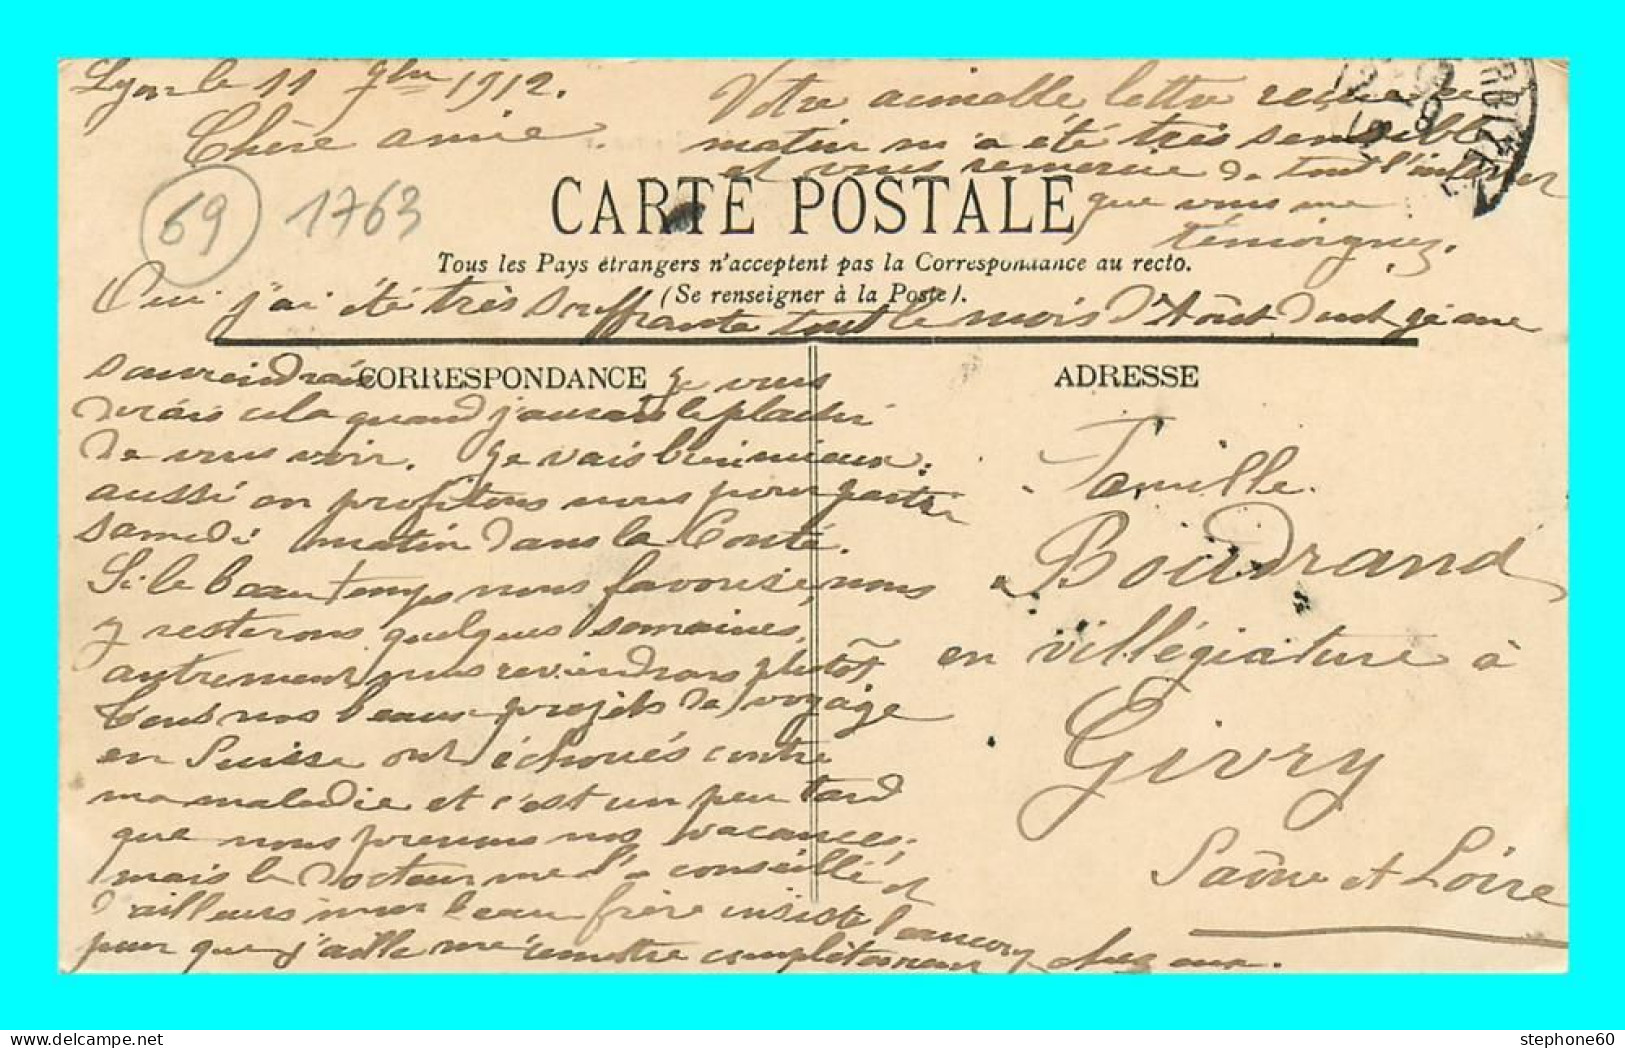 Lyon le 11 9bre 1912.
Chère amie.
Votre aimable lettre reçue ce
matin m'a été très sensible
et vous remercie de tout l'intérêt
que vous me
témoignez.
69 1763
CARTE POSTALE
Tous les Pays étrangers n'acceptent pas la Correspondance au recto.
(Se renseigner à la Poste).
Oui j'ai été très souffrante tout le mois d'Août dont je me
CORRESPONDANCE
ADRESSE
souviendrai je vous
dirais cela quand j'aurais le plaisir
de vous voir. Je vais bien mieux.
aussi en profitons nous pour partir
samedi matin dans la
Si le beau temps nous favorise, nous
y resterons quelques semaines,
autrement nous reviendrons plutôt
Tous nos beaux projets de voyage
en Suisse ont échoués contre
ma maladie et c'est un peu tard
que nous prenons nos vacances.
mais le docteur me l'a conseillé et
d'ailleurs mon beau frère insiste beaucoup
pour que j'aille me remettre complètement chez eux.
Famille
Boidrand
en villégiature à
Givry
Saône et Loire
stephone60